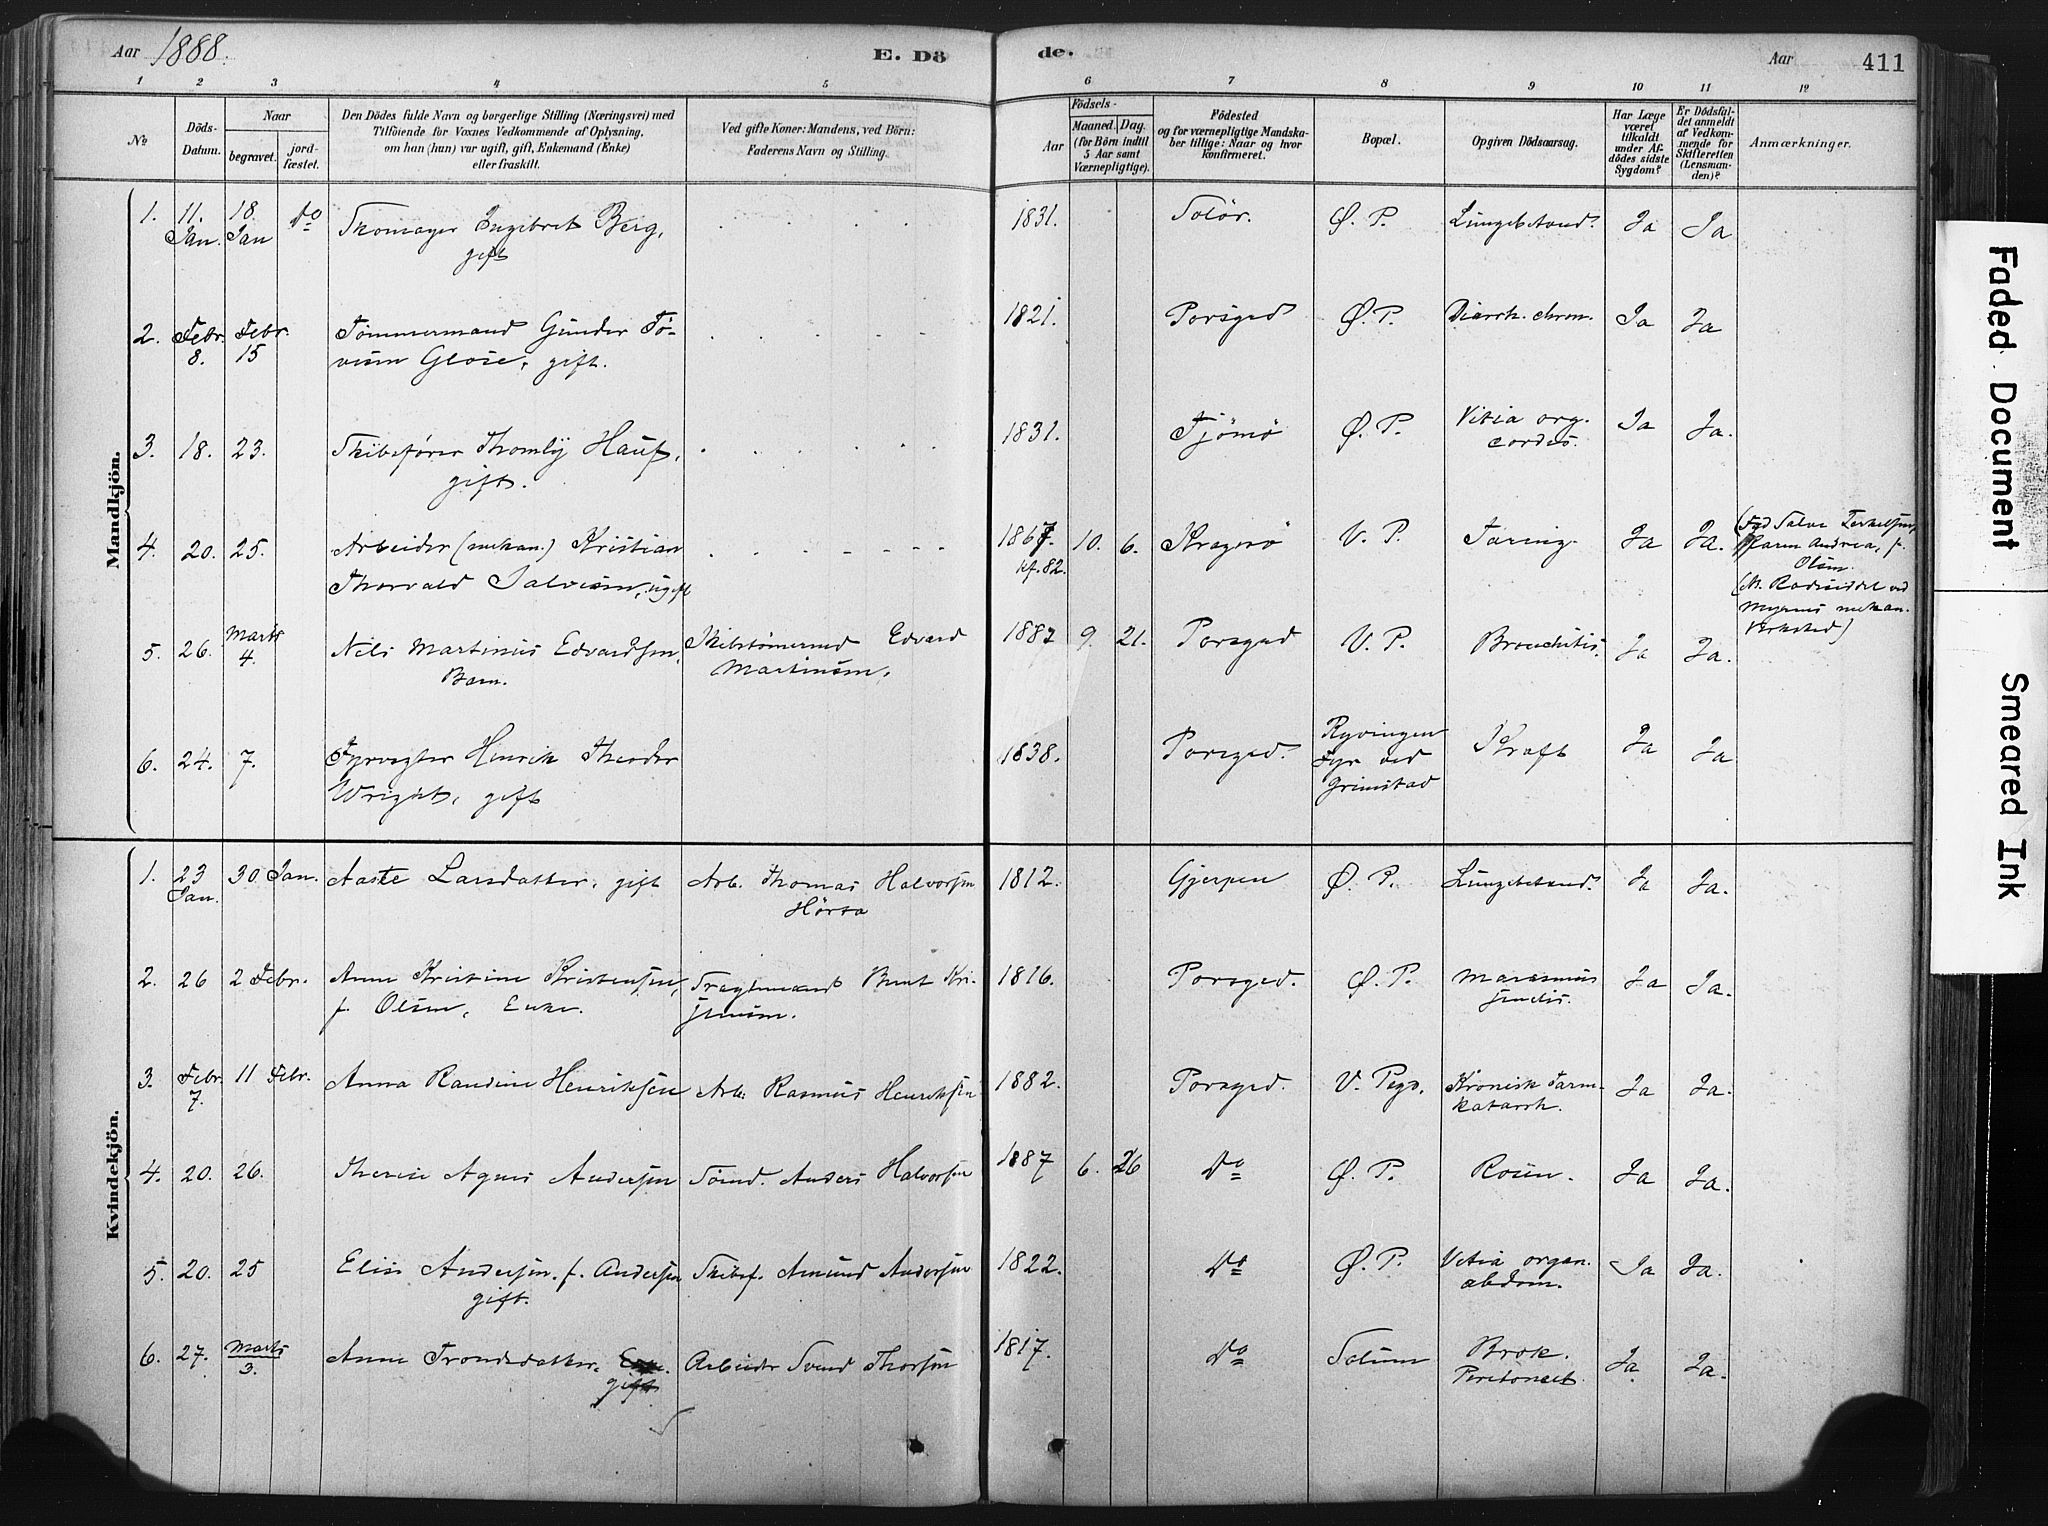 Aar 1888.
E. Dö
de.
Aar
411
1 2 3 4 5 6 7 8 9 10 11 12
No
Döds-
Datum.
Naar
begravet.
jord-
fæstet.
Den Dödes fulde Navn og borgerlige Stilling (Næringsvei) med
Tilföiende for Voxnes Vedkommende af Oplysning,
om han (hun) var ugift, gift, Enkemand (Enke)
eller fraskilt.
Ved gifte Koner: Mandens, ved Börn:
Faderens Navn og Stilling.
Födsels-
Aar
Maaned.
Dag.
(for Börn indtil
5 Aar samt
Værnepligtige).
Födested
og for værnepligtige Mandska-
ber tillige: Naar og hvor
konfirmeret.
Bopæl.
Opgiven Dödsaarsag.
Har Læge
været
tilkaldt
under Af-
dödes sidste
Sygdom?
Er Dödsfal-
det anmeldt
af Vedkom-
mende for
Skifteretten
(Lensman-
den)?
Anmærkninger.
Mandkjön.
1. 11. Jan. 18. Jan Do Skomager Ingebret Berg, 1831. Solör. Ø. P. Lungebetænd. Ja Ja
gift
2. Febr. 8. Febr. 15 Tömmermand Gunder Tö- 1821. Porsgrd Ø. P. Diarrh. chron. Ja Ja
gift.
3. 18. 23. Skibsfører Thomly Hauf, 1831. Tjömö Ø. P. Vitia org. Ja Ja.
gift. cordis.
4. 20. 25. Arbeider (mekan.) Kristian 1867. 10. 6. Kragerö V. P. Tæring. Ja Ja.
Thorvald Salvesen, ugift kf. 82.
Olsen.
mekan.
5. 26. Marts 4. Nils Martinus Edvardsen, Skibstømermd Edvard 1882 9. 21. Porsgrd V. P. Bronchitis. Ja Ja.
Barn. Martinsen.
6. 24. 7. Fyrvogter Henrik Theodor 1838. Porsgrd. Ryvingen Kræft Ja Ja
Wright, gift Fyr ved
Grimstad
Kvindekjön.
1. 23 Jan. 30 Jan. Aaste Larsdatter, gift Arb. Thomas Halvorsen 1812. Gjerpen Ø. P. Lungebetænd. Ja Ja.
Hørta
2. 26 2 Febr. Anne Kristine Kristensen, 1816. Porsgrd. Ø. P. Marasmus Ja Ja.
f. Olsen, Enke. senilis.
3. Febr. 7. 11 Febr. Anna Randine Henriksen Arb. Rasmus Henriksen 1882. Porsgrd. V. Pgr. Kronisk Tarm- Ja Ja.
katarrh.
4. 20. 26. Therese Agnes Andersen Sømd. Anders Halvorsen 1887 6. 26 Do Ø. P. Rosen. Ja Ja.
5. 20. 25 Elise Andersen, f. Andersen Skibsf. Amund Andersen 1822. Do Ø. P. Vitia organ. Ja Ja.
gift. abdom.
6. 27. Marts 3. Anne Trondsdatter. Enke. Arbeider Svend Thorsen 1817. Do Solum Brok. Ja. Ja.
gift Peritoneit.
Faded Document
Smeared Ink